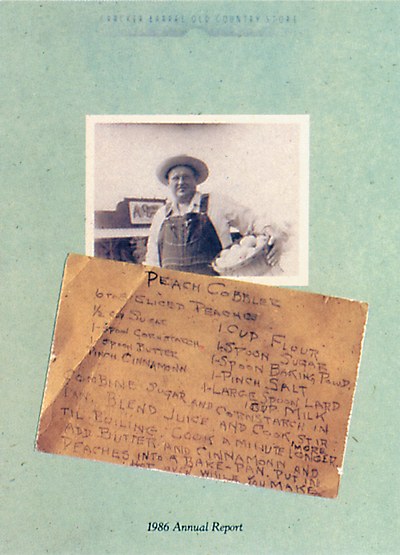 CRACKER BARREL OLD COUNTRY STORE
PEACH COBBLER
6 CUPS SLICED PEACHES
1 CUP FLOUR
SUGAR
1-SPOON SUGAR
1-SPOON CORNSTARCH
1-SPOON BAKING POWD.
SPOON BUTTER
1-PINCH SALT
PINCH CINNAMONN
1-LARGE SPOON LARD
CUP MILK
COMBINE SUGAR AND CORNSTARCH IN
PAN. BLEND JUICE AND COOK, STIR
TIL BOILING. COOK A MINUTE MORE
LONGER
ADD BUTTER AND CINNAMONN AND
PEACHES INTO A BAKE-PAN. PUT IN
HOT WHILE YOU MAKE
1986 Annual Report